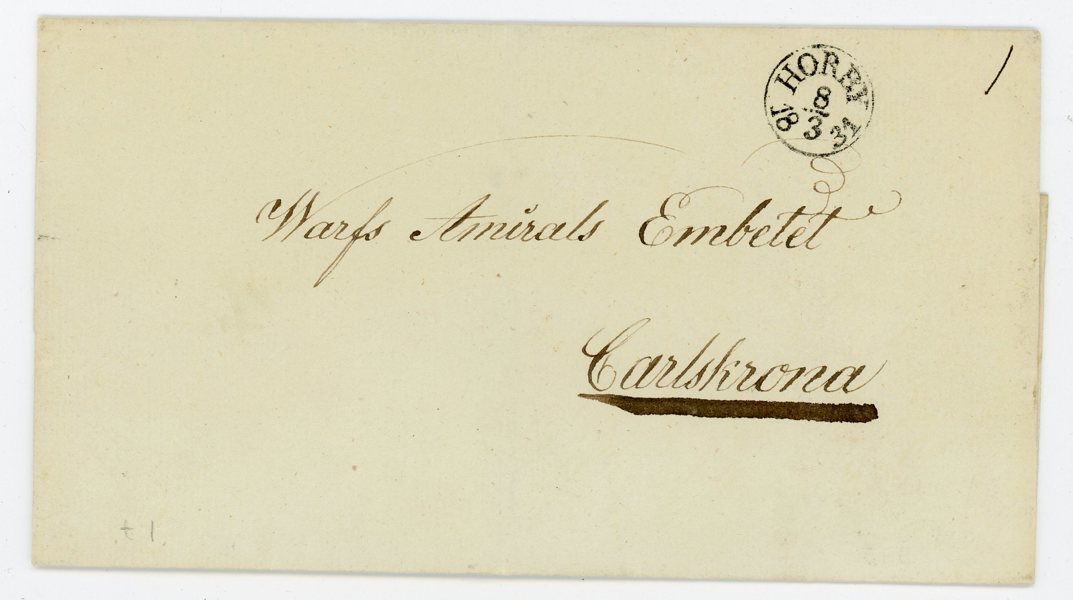 HORBY
8
3
18 31
Warfs Amirals Embetet
Carlskrona